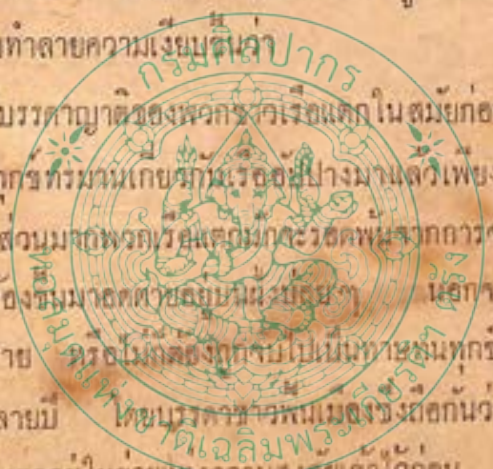 ทำลายความเงียบขึ้นว่า
กรมศิลปากร
บรรดาญาติของพวกชาวเรือแตกในสมัยก่อ
ทุกข์ทรมานเกี่ยวกับเรืออัปปางมาแล้วเพียง
ส่วนมากพวกเรือแตกมักจะรอดพ้นจากการ
ขึ้นมาอดตายอยู่บนฝั่งบ่อยๆ นอกจ
าย หรือไม่ก็ต้องถูกจับไปเป็นทาษทนทุกข
ลายปี โดยบรรดาชาวพื้นเมืองซึ่งถือกันว
หอสมุดแห่งชาติเฉลิมพระเกียรติฯ ตรัง